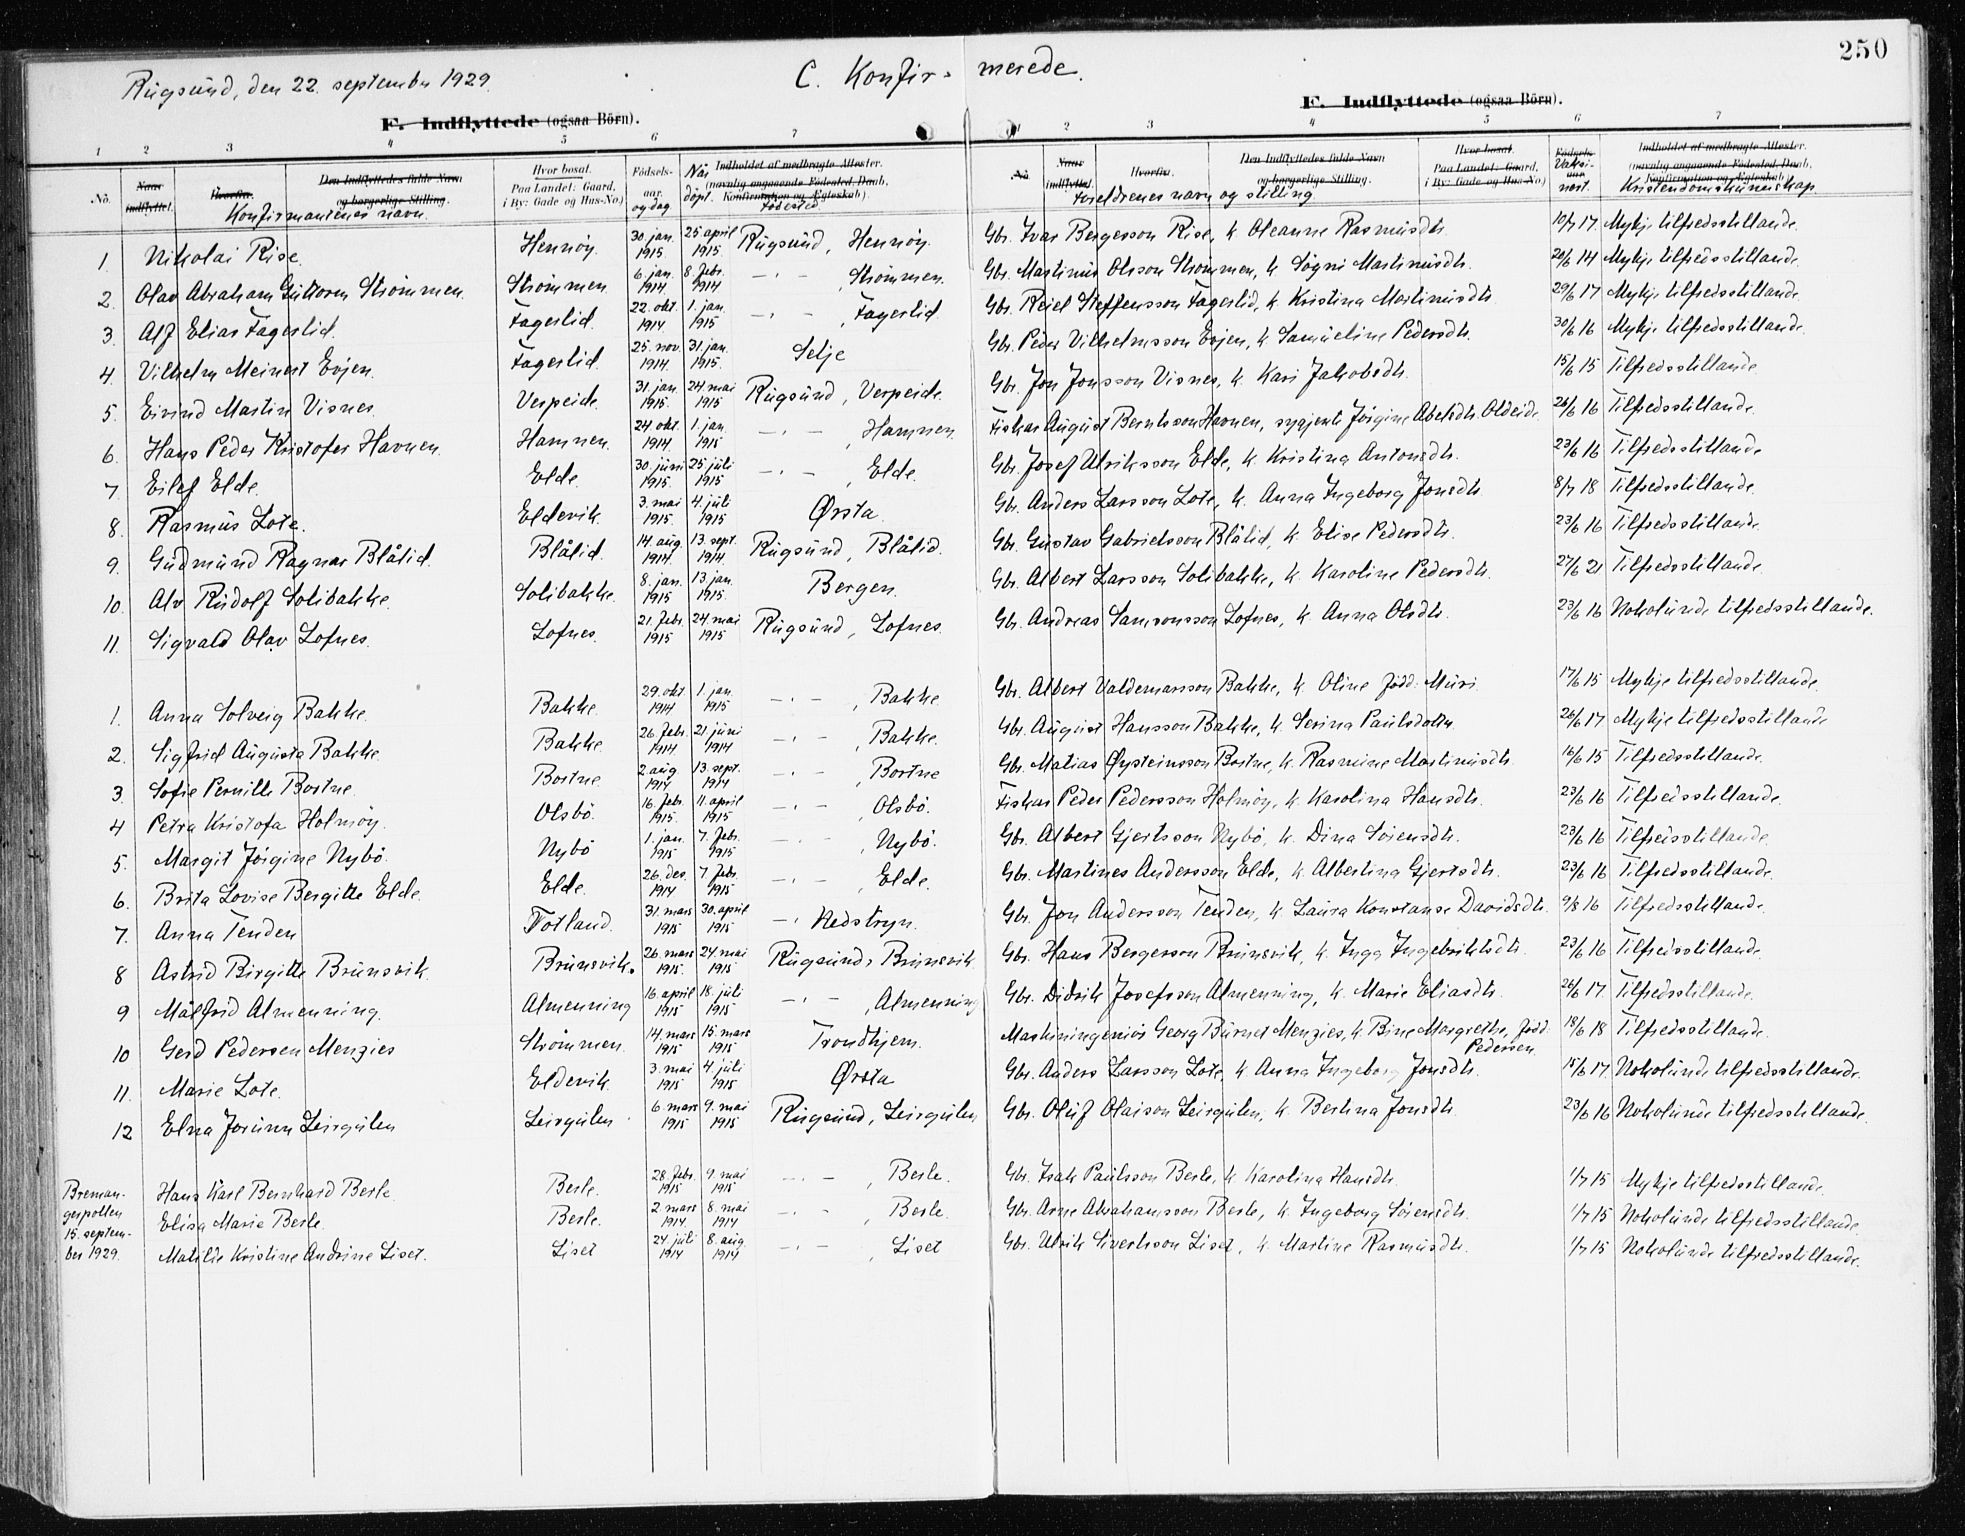 250
Rugsund, den 22. september 1929.
C. Konfirmerede.
F. Indflyttede (ogsaa Börn).
F. Indflyttede (ogsaa Börn).
1 2 3 4 5 6 7
1 2 3 4 5 6 7
No. Naar indflyttet. Hvorfra. Den Indflyttedes fulde Navn og borgerlige Stilling. Hvor bosat. Paa Landet: Gaard, i By: Gade og Hus-No.) Födsels-aar og dag Når döpt. Indholdet af medbragte Attester. (navnlig angaaende Födested, Daab, Konfirmation og Ægteskab).
Konfirmantenes navn. Födested
No. Naar indflyttet. Hvorfra. Den Indflyttedes fulde Navn og borgerlige Stilling. Hvor bosat. Paa Landet: Gaard, i By: Gade og Hus-No.) Födsels- Indholdet af medbragte Attester. (navnlig angaaende Födested, Daab, Konfirmation og Ægteskab).
Foreldrenes navn og stilling Kristendomskunnskap
1 Nikolai Rise. Hennöy. 30. jan. 1915 25 april 1915 Rugsund, Hennöy. Gbr. Ivar Bergesson Rise, k. Oleanne Rasmusdtr. 10/7 17 Mykje tilfredsstillande.
2. Olav Abraham Guttorm Strömmen. Strömmen 6. jan. 1914 8. febr. 1914 -"- , Strömmen. Gbr. Martinus Olsson Strömmen, k. Sögni Martinusdtr. 20/6 14 Mykje tilfredsstillande.
3. Alf Elias Fagerlid. Fagerlid. 22. okt. 1914 1. jan. 1915 -"- , Fagerlid Gbr. Reiel Steffensson Fagerlid, k. Kristina Martinusdtr. 29/6 17 Mykje tilfredsstillande.
4. Vilhelm Meinert Evjen. Fagerlid. 25. nov. 1914. 31. jan. 1915. Selje Gbr. Peder Vilhelmsson Evjen, k. Samueline Pedersdtr. 30/6 16 Mykje tilfredsstillande.
5. Eivind Martin Visnes. Verpeide. 31. jan. 1915. 24. mai 1915 Rugsund, Verpeide. Gbr. Jon Jonsson Visnes, k. Kari Jakobsdtr. 15/6 15 Tilfredsstillande.
6. Hans Peder Kristofer Havnen. Hamnen. 24 okt. 1914. 1. jan. 1915 -"- , Hamnen. Fiskar August Berntsson Havnen, sygjent Jörgine Abelsdtr. Oldeide. 26/6 16 Tilfredsstillande.
7 Eilef Elde. Elde. 30. juni 1915. 25 juli 1915 -"- , Elde. Gbr. Josef Ulriksson Elde, k. Kristina Antonsdtr. 23/6 16 Tilfredsstillande.
8. Rasmus Lote. Eldevik. 3. mai 1915. 4. juli 1915 Ørsta. Gbr. Anders Larsson Lote, k. Anna Ingeborg Jonsdtr. 8/7 18 Tilfredsstillande.
9. Gudmund Ragnar Blålid. Blålid. 14. aug. 1914 13. sept. 1914. Rugsund, Blålid. Gbr. Gustav Gabrielsson Blålid, k. Elise Pedersdtr. 23/6 16 Tilfredsstillande.
10. Alv Rudolf Solibakke. Solibakke. 8. jan. 1915 13. jan. 1915. Bergen. Gbr. Albert Larsson Solibakke, k. Karoline Pedersdtr. 27/6 21 Tilfredsstillande.
11. Sigvald Olav Lofnes. Lofnes. 21. febr. 1915 24. mai 1915 Rugsund, Lofnes. Gbr. Andreas Samsonsson Lofnes, k. Anna Olsdtr. 23/6 16 Nokolunde tilfredsstillande.
1. Anna Solveig Bakke. Bakke. 29. okt. 1914 1. jan. 1915 -"- , Bakke Gbr. Albert Valdemarsson Bakke, k. Oline född: Muri. 17/6 15 Mykje tilfredsstillande.
2. Sigfrid Augusta Bakke. Bakke. 26. febr. 1914 21 juni 1914 -"- , Bakke. Gbr. August Hansson Bakke, k. Serina Paulsdotter 26/6 17 Mykje tilfredsstillande
3. Sofie Pernille Bortne. Bortne 2. aug 1914 13. sept. 1914 -"- , Bortne Gbr. Matias Øysteinsson Bortne, k. Rasmine Martinusdtr. 16/6 15 Tilfredsstillande.
4 Petra Kristofa Holmöy. Olsbö. 16. febr. 1915. 11. april 1915 -"- , Olsbö. Fiskar Peder Pedersson Holmöy, k. Karolina Hansdtr. 23/6 16 Tilfredsstillande.
5. Margit Jörgine Nybö. Nybö 1. jan. 1915 7. febr. 1915 -"- , Nybö. Gbr. Albert Gjertsson Nybö, k. Dina Sörensdtr. 23/6 16 Tilfredsstillande.
6. Brita Lovise Bergitte Elde. Elde. 26. des. 1914 7 febr. 1915 -"- , Elde. Gbr. Martines Andersson Elde, k. Albertina Gjertsdtr. 23/6 16 Tilfredsstillande.
7. Anna Tenden Totland. 31. mars 1915 30. april 1915 -"- Nedstryn. Gbr. Jon Andersson Tenden, k. Laura Konstanse Davidsdtr. 9/8 16 Tilfredsstillande
8 Astrid Birgitte Brunsvik. Brunsvik. 26. mars 1915. 24. mai 1915 Rugsund, Brunsvik. Gbr. Hans Bergerson Brunsvik, k. Inga Ingebriktsdtr. 23/6 16 Tilfredsstillande.
9 Målfrid Almenning. Almenning 16. april 1915 18. juli 1915 -"- , Almenning Gbr. Didrik Josefsson Almenning, k. Marie Eliasdtr. 26/6 17. Tilfredsstillande.
10 Gerd Pedersen Menzies Strömmen. 14. mars 1915 15. mars 1915 Trondhjem. Maskiningeniör Georg Burnet Menzies, k. Bine Margrethe, född: Pedersen. 18/6 18 Tilfredsstillande.
11. Marie Lote. Eldevik. 3. mai 1915 4. juli 1915 Ørsta Gbr. Anders Larsson Lote, k. Anna Ingeborg Jonsdtr. 15/6 17. Nokolunde tilfredsstillande.
12 Elna Jorunn Leirgulen Leirgulen 6 mars 1915 9. mai 1915 Rugsund, Leirgulen Gbr. Oluf Olaison Leirgulen, k. Bertina Jonsdtr. 23/6 16 Nokolunde tilfredsstillande.
Bremangerpollen 15. september 1929. Hans Karl Bernhard Berle. Berle. 28. febr. 1915 9. mai 1915 -"- , Berle. Gbr. Isak Paulsson Berle, k. Karolina Hansdtr. 1/7 15 Mykje tilfredsstillande.
Elisa Marie Berle. Berle. 2. mars 1914. 8. mai 1914 -"- , Berle. Gbr. Arne Abrahamsson Berle, k. Ingeborg Sörensdtr. 1/7 15 Nokolunde tilfredsstillande.
Matilde Kristine Andrine Liset. Liset 24. juli 1914 8. aug. 1914 -"- , Liset Gbr. Ulrik Sivertsson Liset, k. Martine Rasmusdtr. 1/7 15 Nokolunde tilfredsstillande.